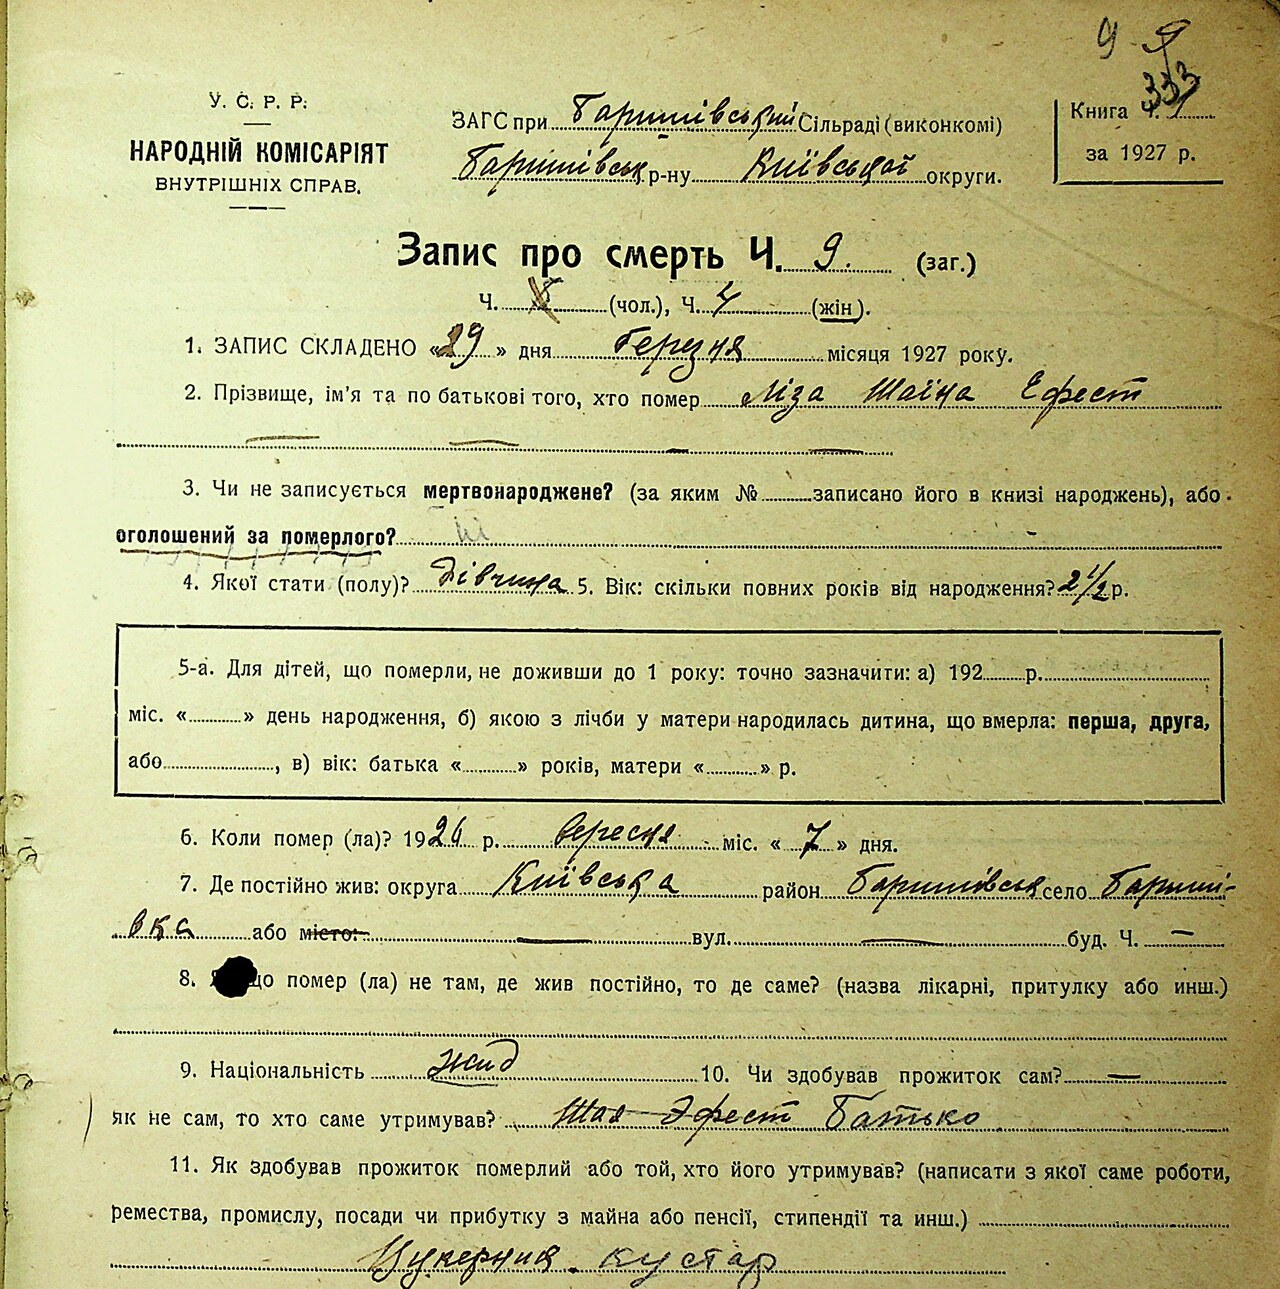 9
333
У. С. Р. Р.
НАРОДНІЙ КОМІСАРІЯТ
ВНУТРІШНІХ СПРАВ.
ЗАГС при Баришівський Сільраді (виконкомі)
Баришівськ р-ну Київської округи.
Книга Ч. 1
за 1927 р.
Запис про смерть Ч. 9. (заг.)
Ч. (чол.), Ч. 4 (жін).
1. ЗАПИС СКЛАДЕНО «29» дня березня місяця 1927 року.
2. Прізвище, ім'я та по батькові того, хто помер Ліза Шаїна Ефест
3. Чи не записується мертвонароджене? (за яким № записано його в книзі народжень), або
оголошений за померлого? ні
4. Якої стати (полу)? дівчина 5. Вік: скільки повних років від народження? 2 1/2 р.
5-а. Для дітей, що померли, не доживши до 1 року: точно зазначити: а) 192 р.
міс. « » день народження, б) якою з лічби у матери народилась дитина, що вмерла: перша, друга,
або , в) вік: батька « » років, матери « » р.
6. Коли помер (ла)? 1926 р. вересня міс. « 7 » дня.
7. Де постійно жив: округа Київська район Баришівськ село Бариші-
вка або місто: — вул. — буд. Ч. —
8. що помер (ла) не там, де жив постійно, то де саме? (назва лікарні, притулку або инш.)
9. Національність жид 10. Чи здобував прожиток сам? —
Як не сам, то хто саме утримував? Шая Эфест Батько
11. Як здобував прожиток померлий або той, хто його утримував? (написати з якої саме роботи,
ремества, промислу, посади чи прибутку з майна або пенсії, стипендії та инш.)
Цукерник. кустар